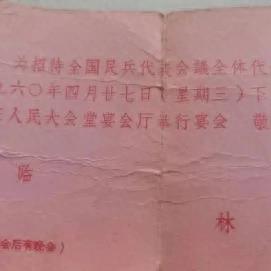 为招待全国民兵代表会議全体代
九六〇年四月廿七日（星期三）下
人民大会堂宴会厅举行宴会 敬
临
林
会后有晚会）